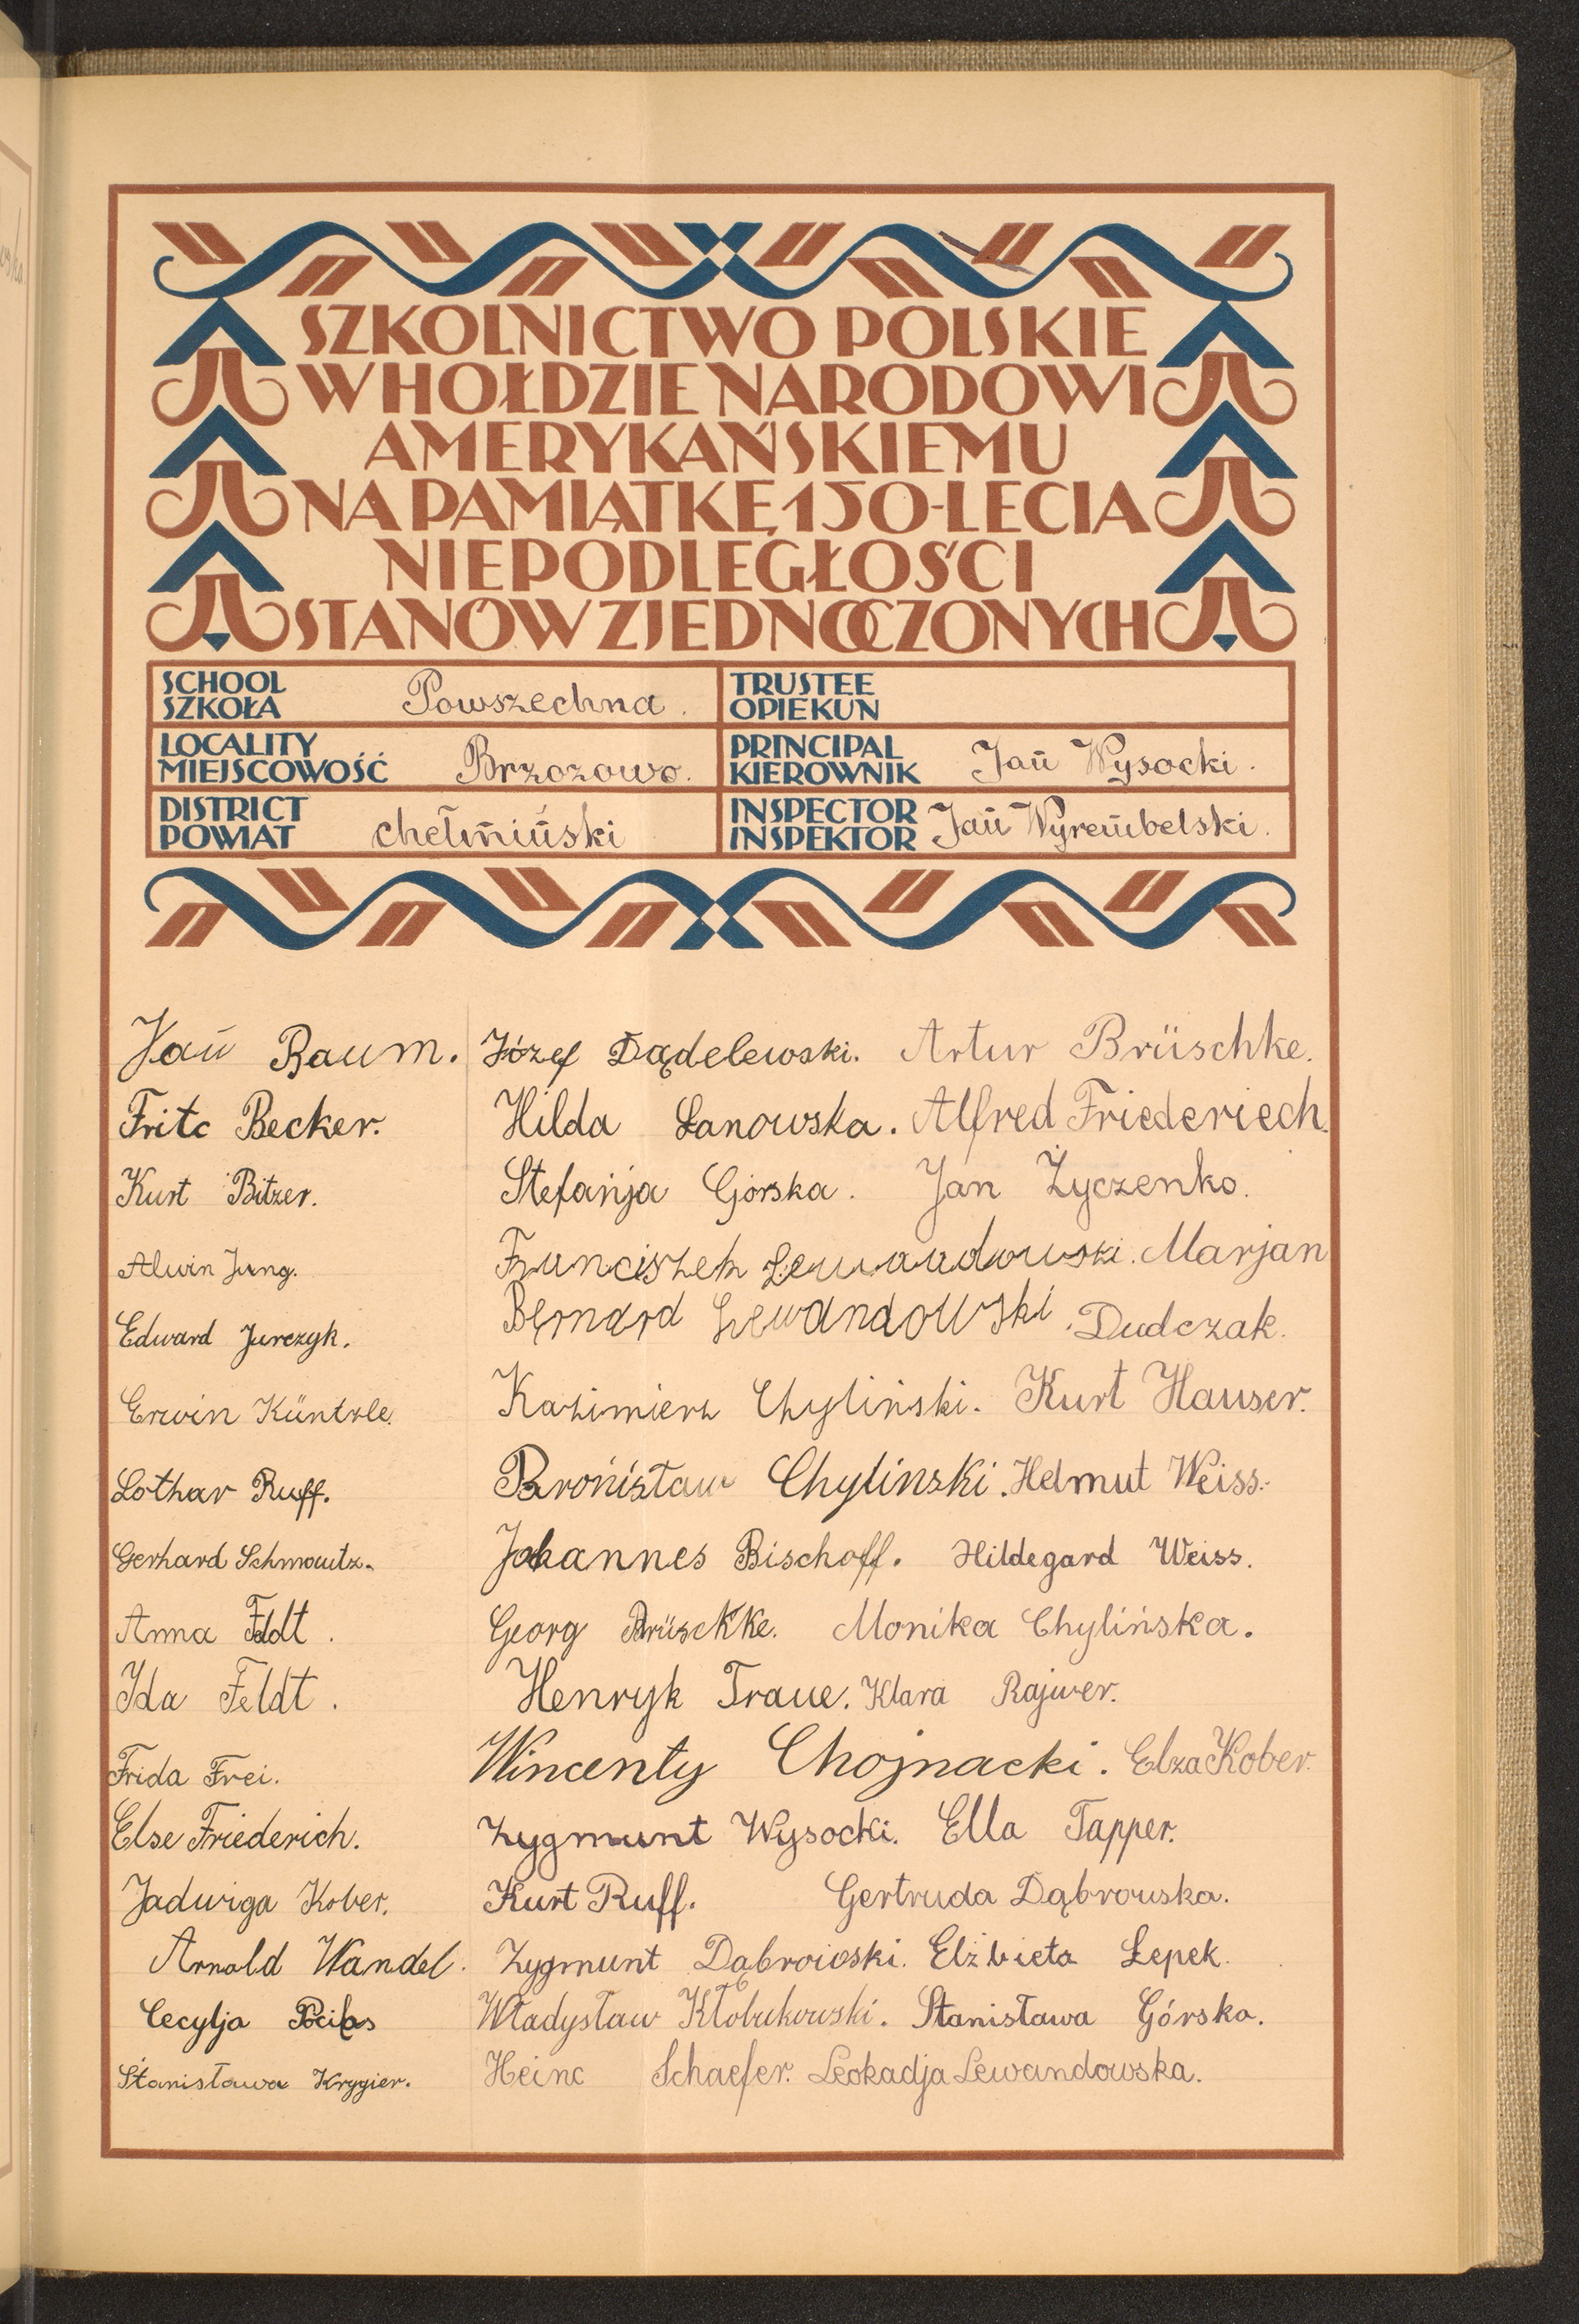 SZKOLNICTWO POLSKIE
W HOŁDZIE NARODOWI
AMERYKAŃSKIEMU
NA PAMIĄTKĘ 150-LECIA
NIEPODLEGŁOŚCI
STANÓW ZJEDNOCZONYCH
SCHOOL
SZKOŁA Powszechna.
TRUSTEE
OPIEKUN
LOCALITY
MIEJSCOWOŚĆ Brzozowo.
PRINCIPAL
KIEROWNIK Jan Wysocki.
DISTRICT
POWIAT chełmiński
INSPECTOR
INSPEKTOR Jan Wyrembelski.
Jan Baum. Józef Dądelewski. Artur Brüschke.
Fritc Becker. Hilda Łanowska. Alfred Friederiech.
Kurt Bitzer. Stefanja Górska. Jan Życzenko.
Alwin Jung. Franciszek Lewandowski. Marjan
Edward Jurczyk. Bernard Lewandowski. Dudczak.
Erwin Küntzle. Kazimierz Chyliński. Kurt Hauser.
Lothar Ruff. Bronisław Chylinski. Helmut Weiss.
Gerhard Schmoutz. Johannes Bischoff. Hildegard Weiss.
Anna Feldt. Georg Brüschke. Monika Chylińska.
Ida Feldt. Henryk Traue. Klara Rajwer.
Frida Frei. Wincenty Chojnacki. Elza Kober.
Else Friederich. Zygmunt Wysocki. Ella Tapper.
Jadwiga Kober. Kurt Ruff. Gertruda Dąbrowska.
Arnold Wandel. Zygmunt Dąbrowski. Elżbieta Łepek.
Cecylja Władysław Kłobukowski. Stanisława Górska.
Stanisława Krygier. Heinc Schaefer. Leokadja Lewandowska.